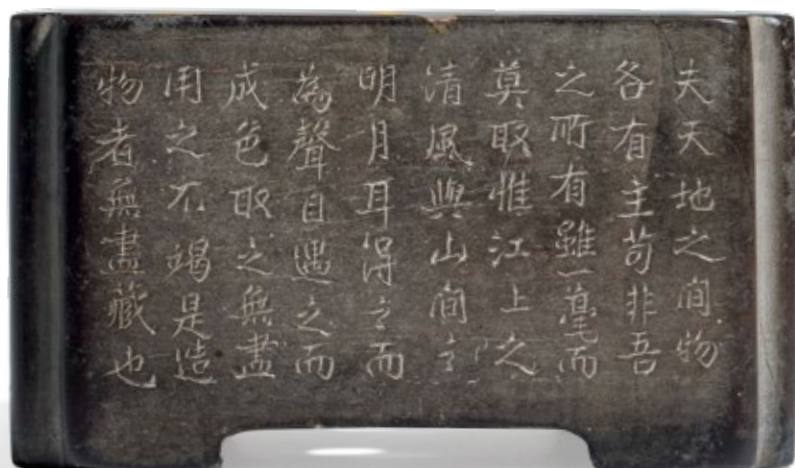 夫天地之間物
各有主苟非吾
之所有雖一毫而
莫取惟江上之
清風與山間之
明月耳得之而
為聲目遇之而
成色取之無盡
用之不竭是造
物者無盡藏也